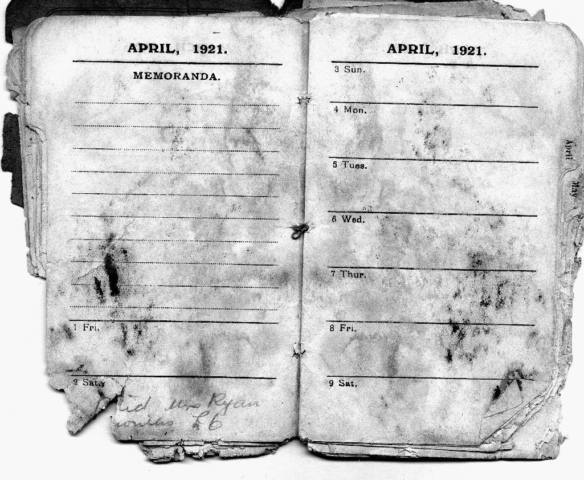 APRIL, 1921.
MEMORANDA.
1 Fri.
2 Sat.
Ryan
£6
APRIL, 1921.
3 Sun.
4 Mon.
5 Tues.
6 Wed.
7 Thur.
8 Fri.
9 Sat.
April
May